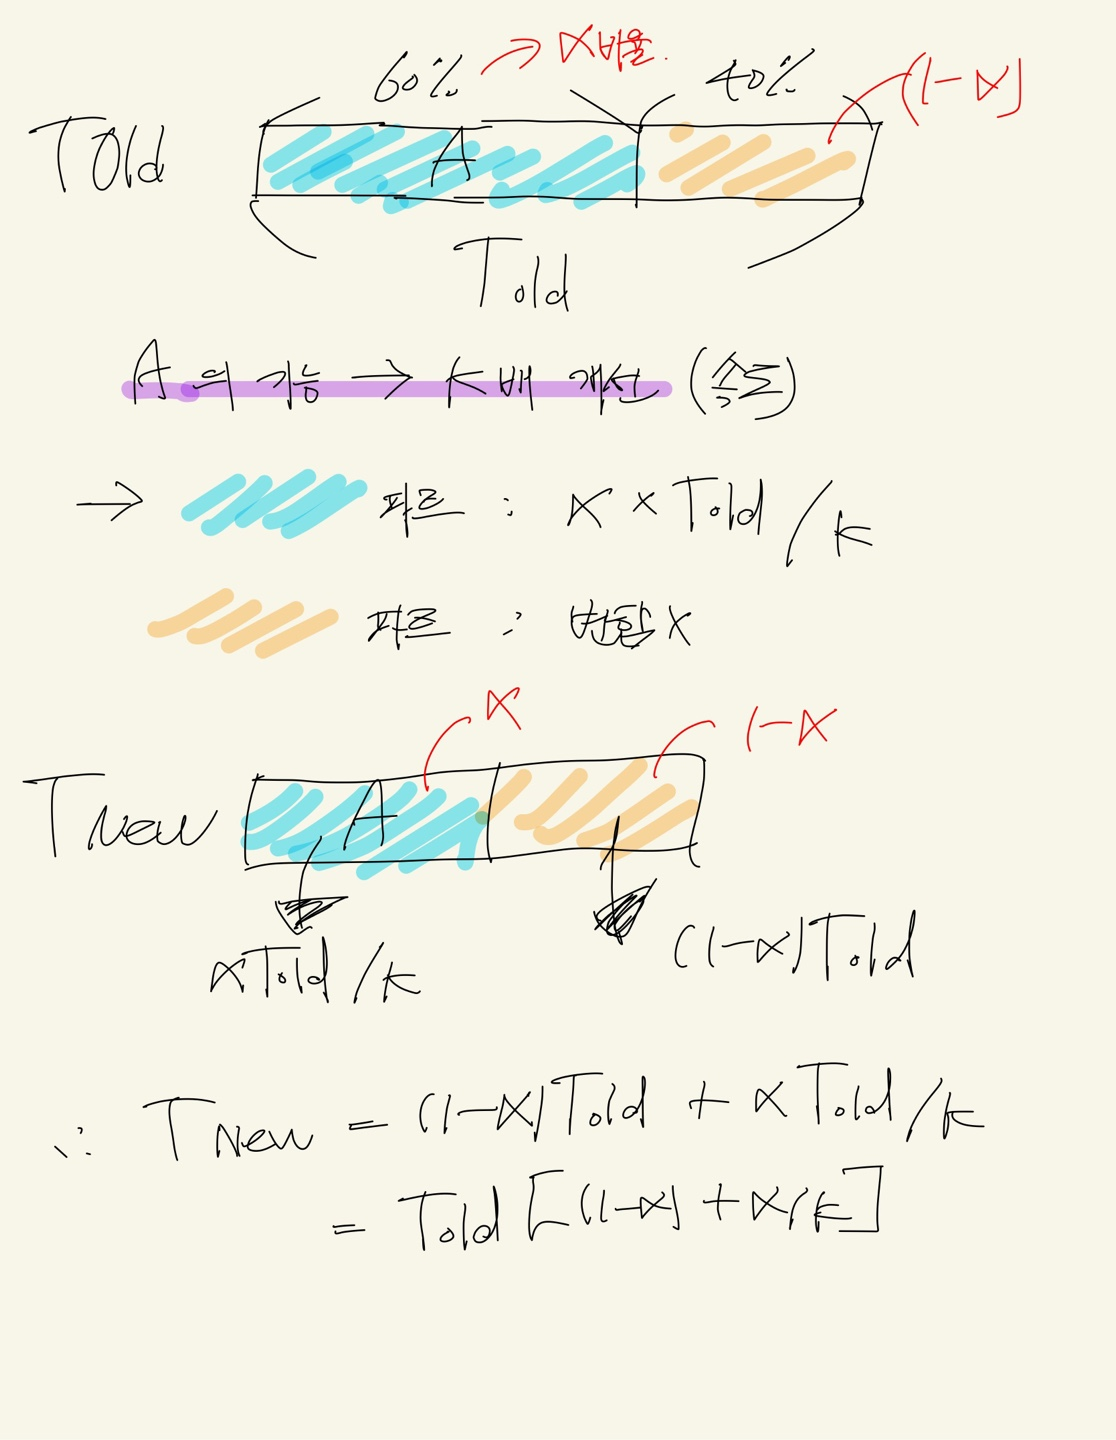 60% → α비율. 40% (1-α)
Told A
Told
A의 기능 → K배 개선 (속도)
→ 파트 : α × Told / k
파트 : 변함 X
α 1-α
TNew A
αTold / k (1-α)Told
∴ TNew = (1-α)Told + αTold / k
= Told [(1-α) + α/k]